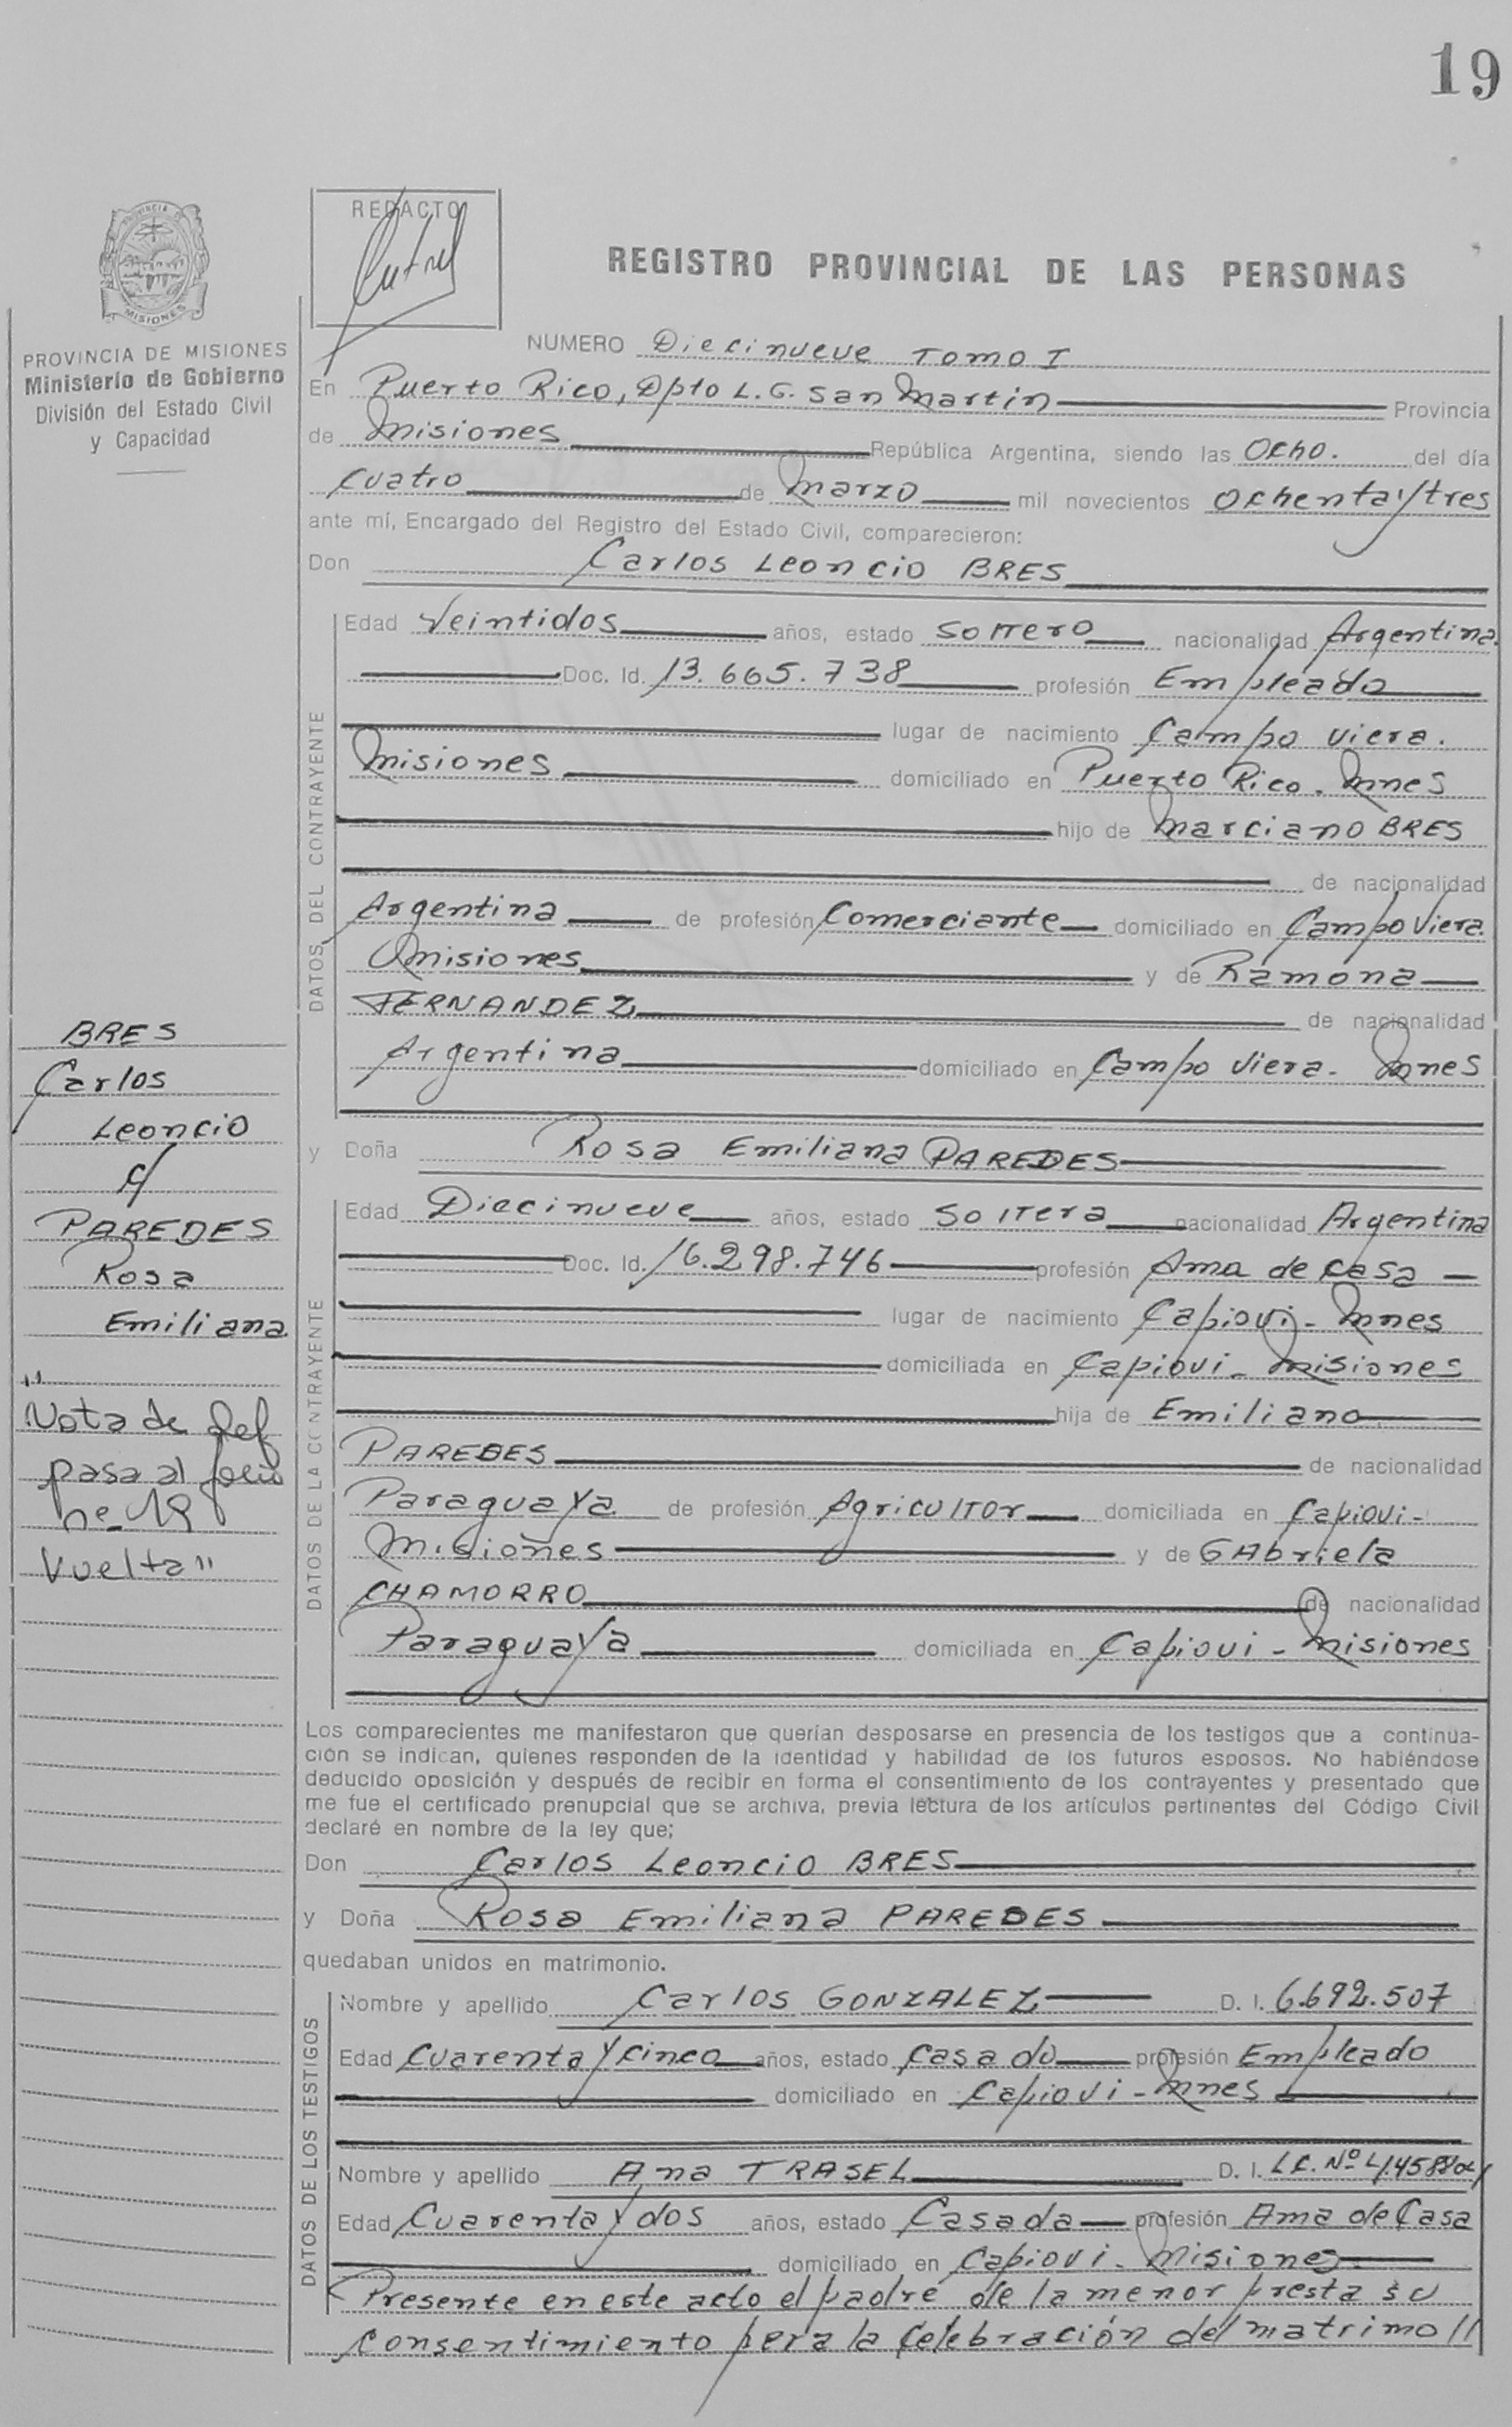 19
REDACTO
REGISTRO PROVINCIAL DE LAS PERSONAS
PROVINCIA DE
MISIONES
PROVINCIA DE MISIONES
Ministerio de Gobierno
División del Estado Civil
y Capacidad
NUMERO Diecinueve Tomo I
En Puerto Rico, Dpto L.G. San Martin Provincia
de Misiones República Argentina, siendo las Ocho. del día
Cuatro de Marzo mil novecientos Ochenta y tres
ante mí, Encargado del Registro del Estado Civil, comparecieron:
Don Carlos Leoncio BRES
DATOS DEL CONTRAYENTE
Edad Veintidos años, estado Soltero nacionalidad Argentina.
Doc. Id. 13.665.738 profesión Empleado
lugar de nacimiento Campo Viera.
Misiones domiciliado en Puerto Rico. Mnes
hijo de Marciano BRES
de nacionalidad
Argentina de profesión Comerciante domiciliado en Campo Viera.
Misiones y de Ramona
FERNANDEZ de nacionalidad
Argentina domiciliado en Campo Viera. Mnes
BRES
Carlos
Leoncio
c/
PAREDES
Rosa
Emiliana
"
Nota de Ref
pasa al folio
nº 19
Vuelta "
y Doña Rosa Emiliana PAREDES
DATOS DE LA CONTRAYENTE
Edad Diecinueve años, estado Soltera nacionalidad Argentina
Doc. Id. 16.298.746 profesión Ama de casa
lugar de nacimiento Capiovi - Mnes
domiciliada en Capiovi - Misiones
hija de Emiliano
PAREDES de nacionalidad
Paraguaya de profesión Agricultor domiciliada en Capiovi -
Misiones y de GAbriela
CHAMORRO de nacionalidad
Paraguaya domiciliada en Capiovi - Misiones
Los comparecientes me manifestaron que querían desposarse en presencia de los testigos que a continua-
ción se indican, quienes responden de la identidad y habilidad de los futuros esposos. No habiéndose
deducido oposición y después de recibir en forma el consentimiento de los contrayentes y presentado que
me fue el certificado prenupcial que se archiva, previa lectura de los artículos pertinentes del Código Civil
declaré en nombre de la ley que;
Don Carlos Leoncio BRES
y Doña Rosa Emiliana PAREDES
quedaban unidos en matrimonio.
DATOS DE LOS TESTIGOS
Nombre y apellido Carlos GONZALEZ D. I. 6.692.507
Edad Cuarenta y cinco años, estado Casado profesión Empleado
domiciliado en Capiovi - Mnes
Nombre y apellido Ana TRASEL D. I. LC. Nº
Edad Cuarenta y dos años, estado Casada profesión Ama de Casa
domiciliado en Capiovi - Misiones.
Presente en este acto el padre de la menor presta su
consentimiento para la celebración del matrimo //